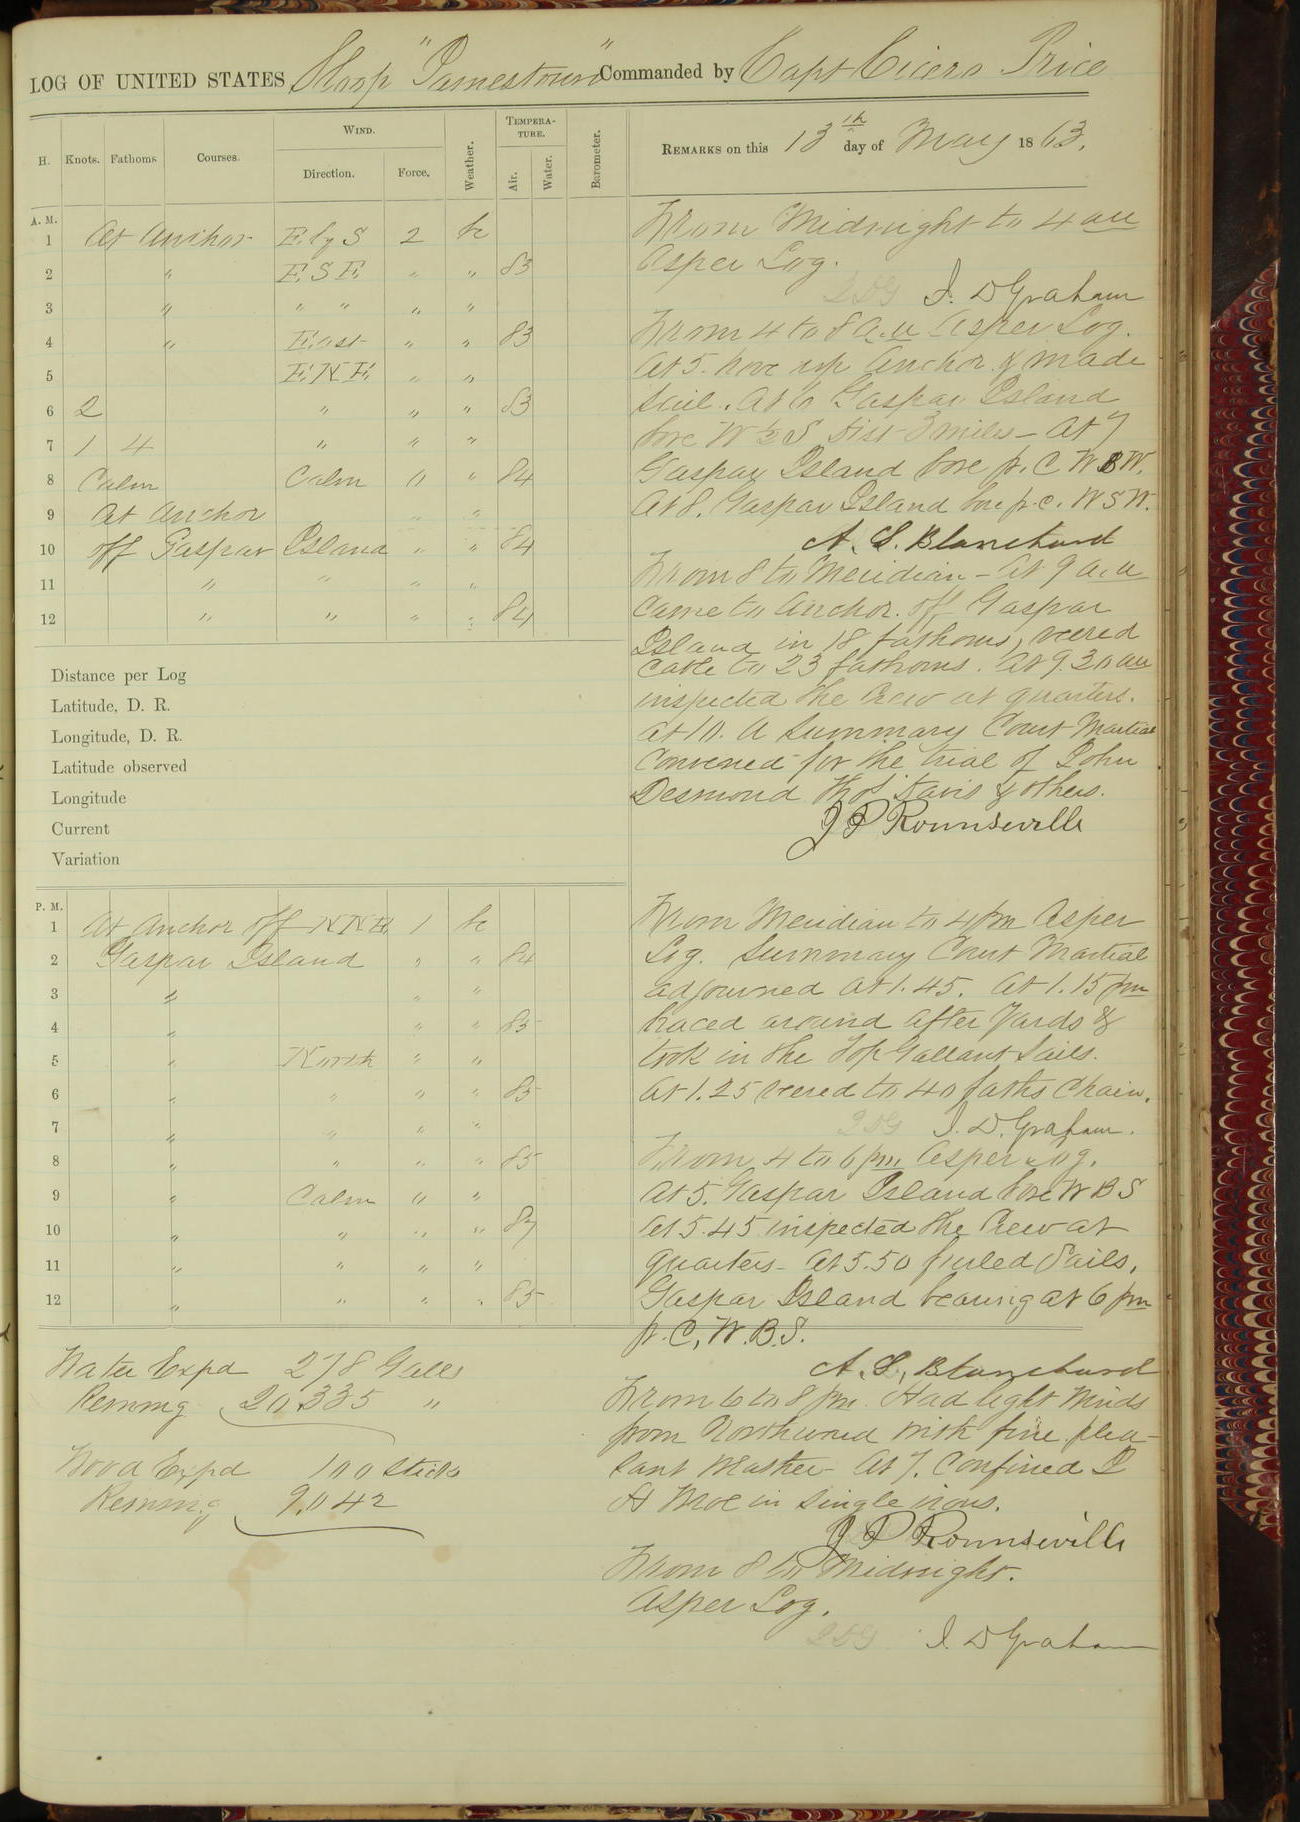 LOG OF UNITED STATES Sloop "Jamestown" Commanded by Capt Cicero Price
H. Knots. Fathoms Courses. WIND. Direction. Force. Weather. TEMPERATURE. Air. Water. Barometer. REMARKS on this 13th day of May 1863.
A. M.
1 At Anchor E by S 2 bc
2 " E S E " " 83
3 " " " " "
4 " East " " 83
5 E N E " "
6 2 " " " 83
7 1 4 " " "
8 Calm Calm 0 " 84
9 At Anchor " "
10 off Gaspar Island " " 84
11 " " " "
12 " " " " 84
From Midnight to 4 am
Asper Log.
I. D Graham
From 4 to 8 a.m Asper Log.
At 5. hove up Anchor & made
Sail. At 6 Gaspar Island
bore W ½ S dist 3 miles - At 7
Gaspar Island bore p. C W B W.
At 8. Gaspar Island bore p. c. W S W.
A. S. Blanchard
From 8 to Meridian - At 9 a.m
Came to Anchor. off Gaspar
Island in 18 fathoms, veered
cable to 23 fathoms. At 9.30 am
inspected the Crew at quarters.
At 10. A Summary Court Martial
Convened for the trial of John
Desmond Thos Davis & others.
J P Rounseville
Distance per Log
Latitude, D. R.
Longitude, D. R.
Latitude observed
Longitude
Current
Variation
P. M.
1 At Anchor off N N E 1 bc
2 Gaspar Island " " 84
3 " " "
4 " " " 85
5 " North " "
6 " " " " 85
7 " " " "
8 " " " " 85
9 " Calm 0 "
10 " " " " 87
11 " " " "
12 " " " " 85
From Meridian to 4 pm Asper
Log. Summary Court Martial
adjourned at 1.45. At 1.15 pm
braced around after Yards &
took in the Top Gallant Sails.
At 1.25 veered to 40 faths Chain.
I. D. Graham.
From 4 to 6 pm. Asper Log.
At 5. Gaspar Island bore W B S
At 5.45 inspected the Crew at
quarters - At 5.50 furled Sails,
Gaspar Island bearing at 6 pm
p. C, W. B. S.
A. S. Blanchard
From 6 to 8 pm. Had light Winds
from Northward with fine plea-
sant Weather - At 7. Confined J
A Moe in single irons.
J P Rounseville
From 8 to Midnight.
Asper Log.
I. D Graham
Water Expd 278 Galls
Remng 20,335 "
Wood Expd 100 Sticks
Remng 9,042